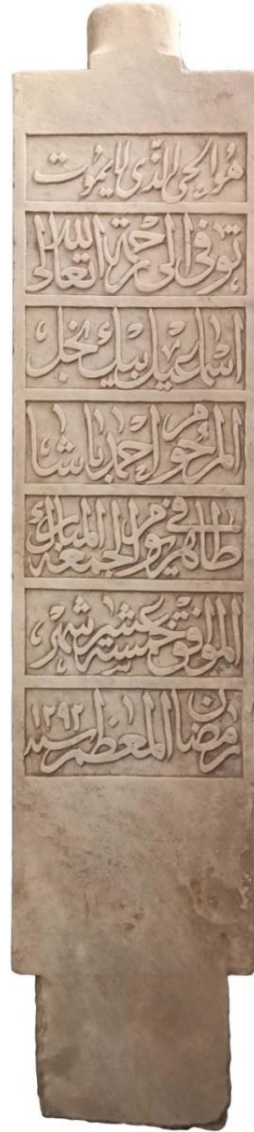 هو الحي الذي لا يموت
توفى الى رحمة الله تعالى
اسماعيل بيك نجل
المرحوم احمد باشا
طاهر في يوم الجمعه المبارك
الموفق خمسة عشر شهر
رمضان المعظم سنه ١٢٩٢